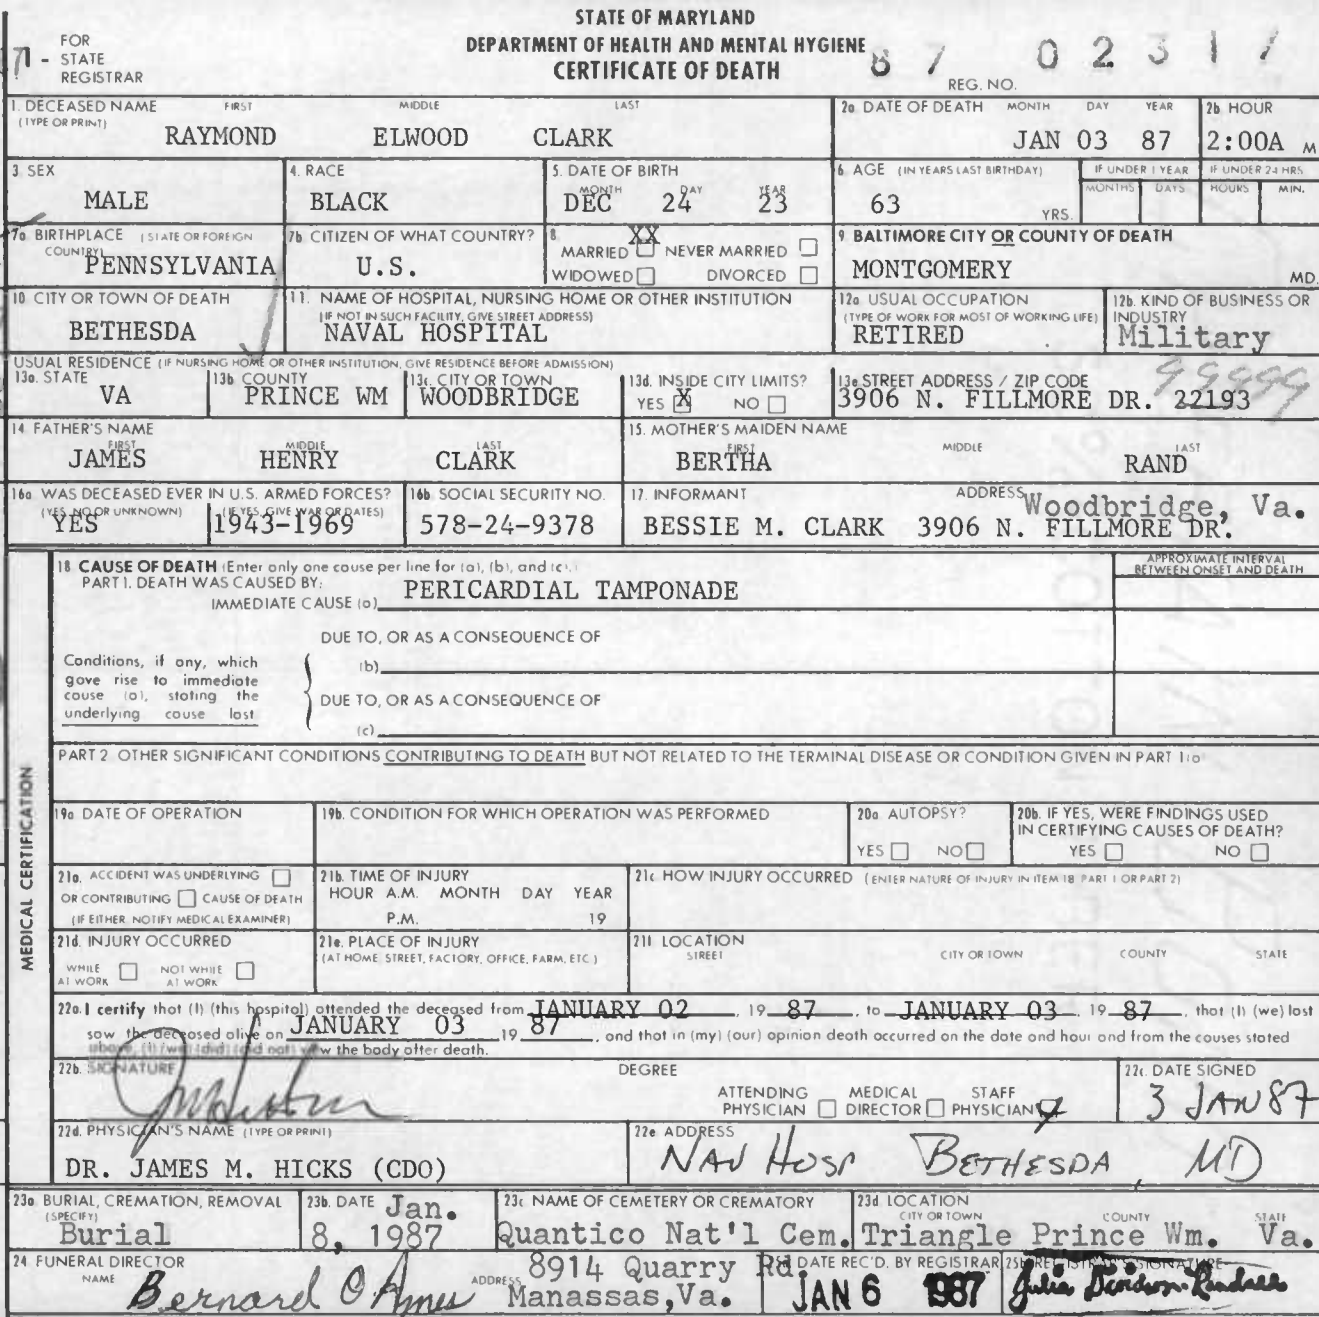 STATE OF MARYLAND
DEPARTMENT OF HEALTH AND MENTAL HYGIENE
CERTIFICATE OF DEATH
FOR STATE REGISTRAR
REG. NO.
1. DECEASED NAME (TYPE OR PRINT) FIRST MIDDLE LAST
RAYMOND ELWOOD CLARK
2a. DATE OF DEATH MONTH DAY YEAR
JAN 03 87
2b. HOUR
2:00A M
3. SEX
MALE
4. RACE
BLACK
5. DATE OF BIRTH MONTH DAY YEAR
DEC 24 23
6. AGE (IN YEARS LAST BIRTHDAY)
63 YRS.
IF UNDER 1 YEAR MONTHS DAYS
IF UNDER 24 HRS HOURS MIN.
7a. BIRTHPLACE (STATE OR FOREIGN COUNTRY)
PENNSYLVANIA
7b. CITIZEN OF WHAT COUNTRY?
U.S.
8. MARRIED XX NEVER MARRIED
WIDOWED DIVORCED
9. BALTIMORE CITY OR COUNTY OF DEATH
MONTGOMERY MD.
10. CITY OR TOWN OF DEATH
BETHESDA
11. NAME OF HOSPITAL, NURSING HOME OR OTHER INSTITUTION
(IF NOT IN SUCH FACILITY, GIVE STREET ADDRESS)
NAVAL HOSPITAL
12a. USUAL OCCUPATION
(TYPE OF WORK FOR MOST OF WORKING LIFE)
RETIRED
12b. KIND OF BUSINESS OR INDUSTRY
Military
USUAL RESIDENCE (IF NURSING HOME OR OTHER INSTITUTION, GIVE RESIDENCE BEFORE ADMISSION)
13a. STATE
VA
13b. COUNTY
PRINCE WM
13c. CITY OR TOWN
WOODBRIDGE
13d. INSIDE CITY LIMITS?
YES X NO
13e. STREET ADDRESS / ZIP CODE
99999
3906 N. FILLMORE DR. 22193
14. FATHER'S NAME FIRST MIDDLE LAST
JAMES HENRY CLARK
15. MOTHER'S MAIDEN NAME FIRST MIDDLE LAST
BERTHA RAND
16a. WAS DECEASED EVER IN U.S. ARMED FORCES?
(YES, NO OR UNKNOWN) (IF YES, GIVE WAR OR DATES)
YES 1943-1969
16b. SOCIAL SECURITY NO.
578-24-9378
17. INFORMANT ADDRESS
Woodbridge, Va.
BESSIE M. CLARK 3906 N. FILLMORE DR.
MEDICAL CERTIFICATION
18. CAUSE OF DEATH (Enter only one cause per line for (a), (b), and (c).)
APPROXIMATE INTERVAL BETWEEN ONSET AND DEATH
PART I. DEATH WAS CAUSED BY:
IMMEDIATE CAUSE (a) PERICARDIAL TAMPONADE
DUE TO, OR AS A CONSEQUENCE OF
Conditions, if any, which gave rise to immediate cause (a), stating the underlying cause last
(b)
DUE TO, OR AS A CONSEQUENCE OF
(c)
PART 2 OTHER SIGNIFICANT CONDITIONS CONTRIBUTING TO DEATH BUT NOT RELATED TO THE TERMINAL DISEASE OR CONDITION GIVEN IN PART 1(a)
19a. DATE OF OPERATION
19b. CONDITION FOR WHICH OPERATION WAS PERFORMED
20a. AUTOPSY?
YES NO
20b. IF YES, WERE FINDINGS USED IN CERTIFYING CAUSES OF DEATH?
YES NO
21a. ACCIDENT WAS UNDERLYING
OR CONTRIBUTING CAUSE OF DEATH
(IF EITHER, NOTIFY MEDICAL EXAMINER)
21b. TIME OF INJURY
HOUR A.M. MONTH DAY YEAR
P.M. 19
21c. HOW INJURY OCCURRED (ENTER NATURE OF INJURY IN ITEM 18 PART 1 OR PART 2)
21d. INJURY OCCURRED
WHILE AT WORK NOT WHILE AT WORK
21e. PLACE OF INJURY
(AT HOME, STREET, FACTORY, OFFICE, FARM, ETC.)
21f. LOCATION
STREET CITY OR TOWN COUNTY STATE
22a. I certify that (I) (this hospital) attended the deceased from JANUARY 02 19 87, to JANUARY 03 19 87, that (I) (we) last
saw the deceased alive on JANUARY 03 19 87, and that in (my) (our) opinion death occurred on the date and hour and from the causes stated
above, (I) (we) (did) (did not) view the body after death.
22b. SIGNATURE
DEGREE
ATTENDING PHYSICIAN MEDICAL DIRECTOR STAFF PHYSICIAN
22c. DATE SIGNED
3 JAN 87
22d. PHYSICIAN'S NAME (TYPE OR PRINT)
DR. JAMES M. HICKS (CDO)
22e. ADDRESS
NAV HOSP BETHESDA, MD
23a. BURIAL, CREMATION, REMOVAL (SPECIFY)
Burial
23b. DATE
Jan. 8, 1987
23c. NAME OF CEMETERY OR CREMATORY
Quantico Nat'l Cem.
23d. LOCATION CITY OR TOWN COUNTY STATE
Triangle Prince Wm. Va.
24. FUNERAL DIRECTOR
NAME Bernard O Ames
ADDRESS 8914 Quarry Rd.
Manassas, Va.
DATE REC'D. BY REGISTRAR
JAN 6 1987
25b. REGISTRAR'S SIGNATURE
Julia Davidson-Randall